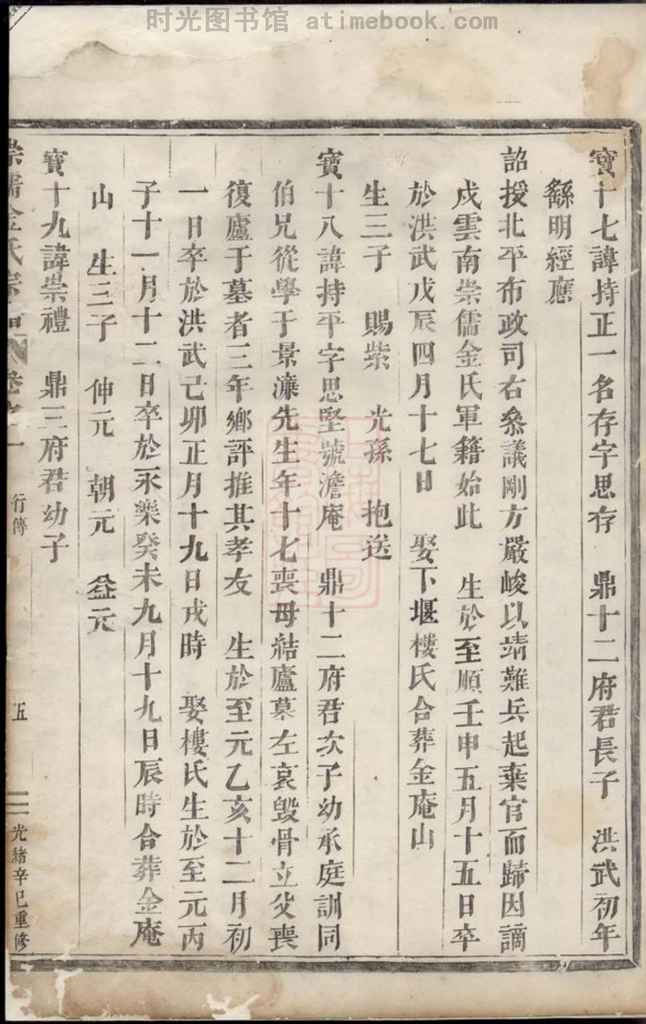 时光图书馆 atimebook.com
寶十七諱持正一名存字思存 鼎十二府君長子 洪武初年
繇明經應
詔授北平布政司右叅議剛方嚴峻以靖難兵起棄官而歸因謫
戍雲南崇儒金氏軍籍始此 生於至順壬申五月十五日卒
於洪武戊辰四月十七日 娶下堰樓氏合葬金庵山
生三子 賜紫 光孫 抱送
寶十八諱持平字思堅號澹庵 鼎十二府君次子幼承庭訓同
伯兄從學于景濂先生年十七喪母結廬墓左哀毀骨立父喪
復廬于墓者三年鄉評推其孝友 生於至元乙亥十二月初
一日卒於洪武己卯正月十九日戌時 娶樓氏生於至元丙
子十一月十二日卒於永樂癸未九月十九日辰時合葬金庵
山 生三子 伸元 朝元 益元
寶十九諱崇禮 鼎三府君幼子
崇儒金氏宗 卷之一 行傳 五 光緒辛巳重修